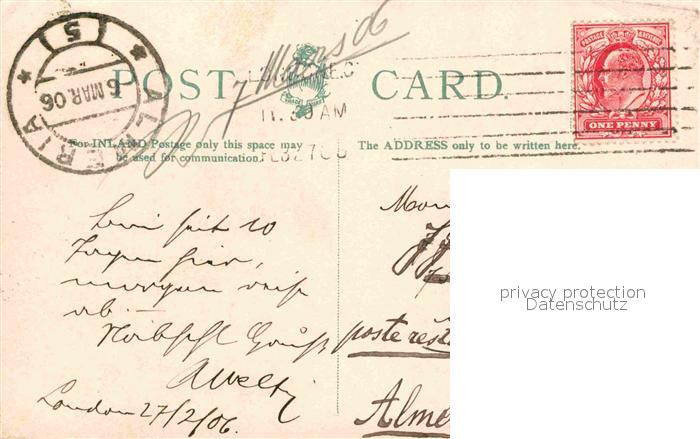 POST CARD
7 Mars
ALMERIA
5
6 MAR. 06
11.30 AM
FEB 27 06
POSTAGE & REVENUE
ONE PENNY
For INLAND Postage only this space may
be used for communication.
The ADDRESS only to be written here.
seit 10
Tagen hier,
morgen reise
ab. –
London 27/2/06.
Mon
poste rest
Alme
privacy protection
Datenschutz